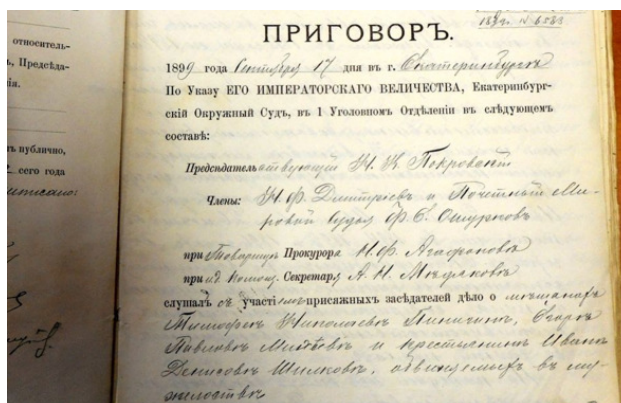 относитель-
Предсѣда-
ія.
ъ публично,
сего года
писано:
189 г. № 6583
ПРИГОВОРЪ.
1899 года Сентября 17 дня въ г. Екатеринбургѣ
По Указу ЕГО ИМПЕРАТОРСКАГО ВЕЛИЧЕСТВА, Екатеринбург-
скій Окружный Судъ, въ 1 Уголовномъ Отдѣленіи въ слѣдующемъ
составѣ:
Предсѣдательствующій Н. К. Покровскій
Члены: Н. Ф. Дмитріевъ и Почетный Ми-
ровой Судья Ф. Е. Ошурковъ
при Товарищѣ Прокурора Н. Ф. Агафоновѣ
при Помощ. Секретаря А. Н.
слушалъ съ участіемъ присяжныхъ засѣдателей дѣло о мѣщанахъ
Тимофеѣ Николаевѣ Пиничинѣ, Егорѣ
Павловѣ и крестьянинѣ Иванѣ
Денисовѣ Шилковѣ, обвиняемыхъ въ му-
желоствѣ